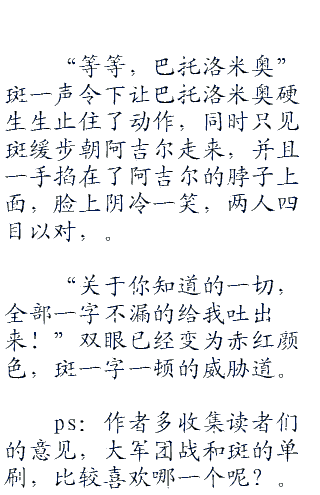 “等等，巴托洛米奥”
斑一声令下让巴托洛米奥硬
生生止住了动作，同时只见
斑缓步朝阿吉尔走来，并且
一手掐在了阿吉尔的脖子上
面，脸上阴冷一笑，两人四
目以对，。
“关于你知道的一切，
全部一字不漏的给我吐出
来！”双眼已经变为赤红颜
色，斑一字一顿的威胁道。
ps：作者多收集读者们
的意见，大军团战和斑的单
刷，比较喜欢哪一个呢？。